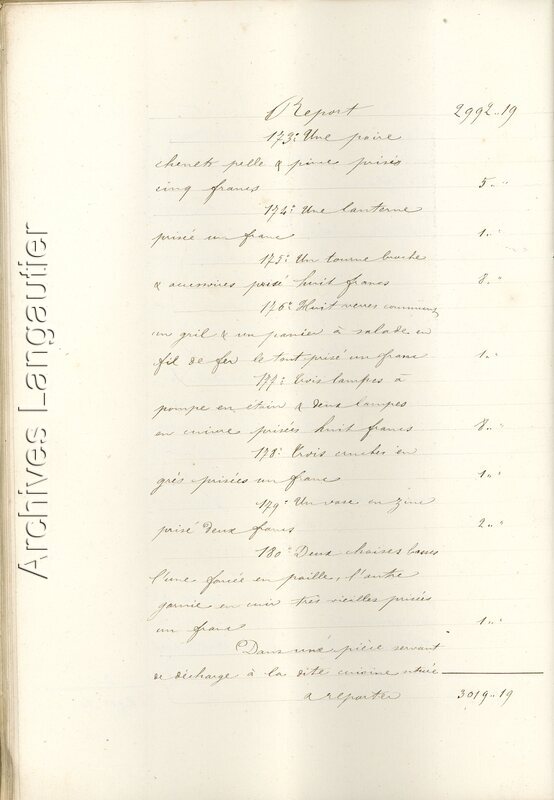 Archives Langautier
Report 2992.. 19
173° Une paire
chenets pelle & pince prisés
cinq francs 5 .. "
174° Une lanterne
prisée un franc 1 .. "
175° Un tourne broche
& accessoires prisé huit francs 8 .. "
176° Huit verres communs
un gril & un panier à salade en
fil de fer le tout prisé un franc 1 .. "
177° Trois lampes à
pompe en étain & deux lampes
en cuivre prisées huit francs 8 .. "
178° Trois cruches en
grès prisées un franc 1 .. "
179° Un vase en zinc
prisé deux francs 2 .. "
180° Deux chaises basses
l'une foncée en paille, l'autre
garnie en cuir très vieilles prisées
un franc 1 .. "
Dans une pièce servant
de décharge à la dite cuisine située
a reporter 3019 .. 19